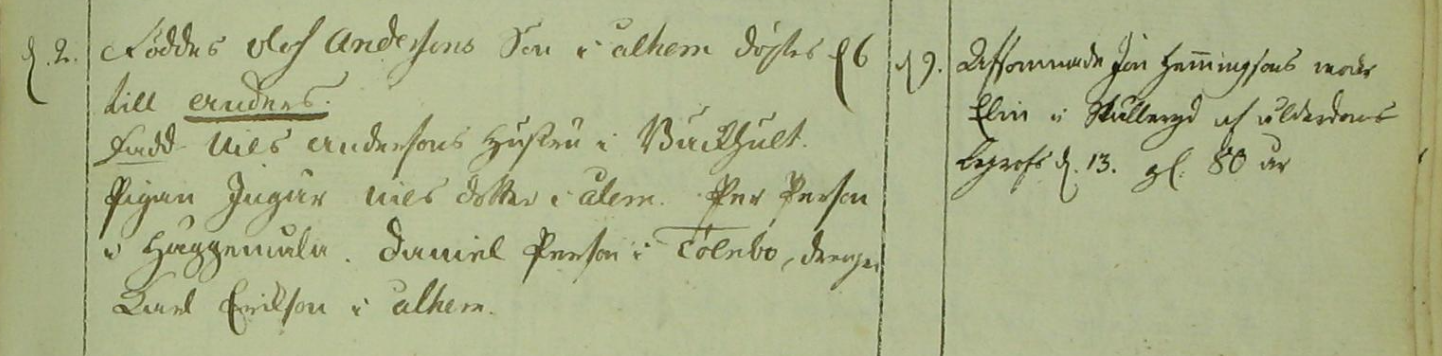 d. 2. Föddes Olof Andersons Son i alhem döptes d 6
till Anders.
Fadd. Nils Andersons Hustru i Buckhult.
Pigan Ingar Nils dotter i alem. Per Person
i Haggemåla. Daniel Person i Tolebo, drengen
Karl Erikson i alhem.
d 9. Afsomnade Jon Hemmingsons moder
Elin i Skulleryd af ålderdoms
begrofs d. 13. gl. 80 år